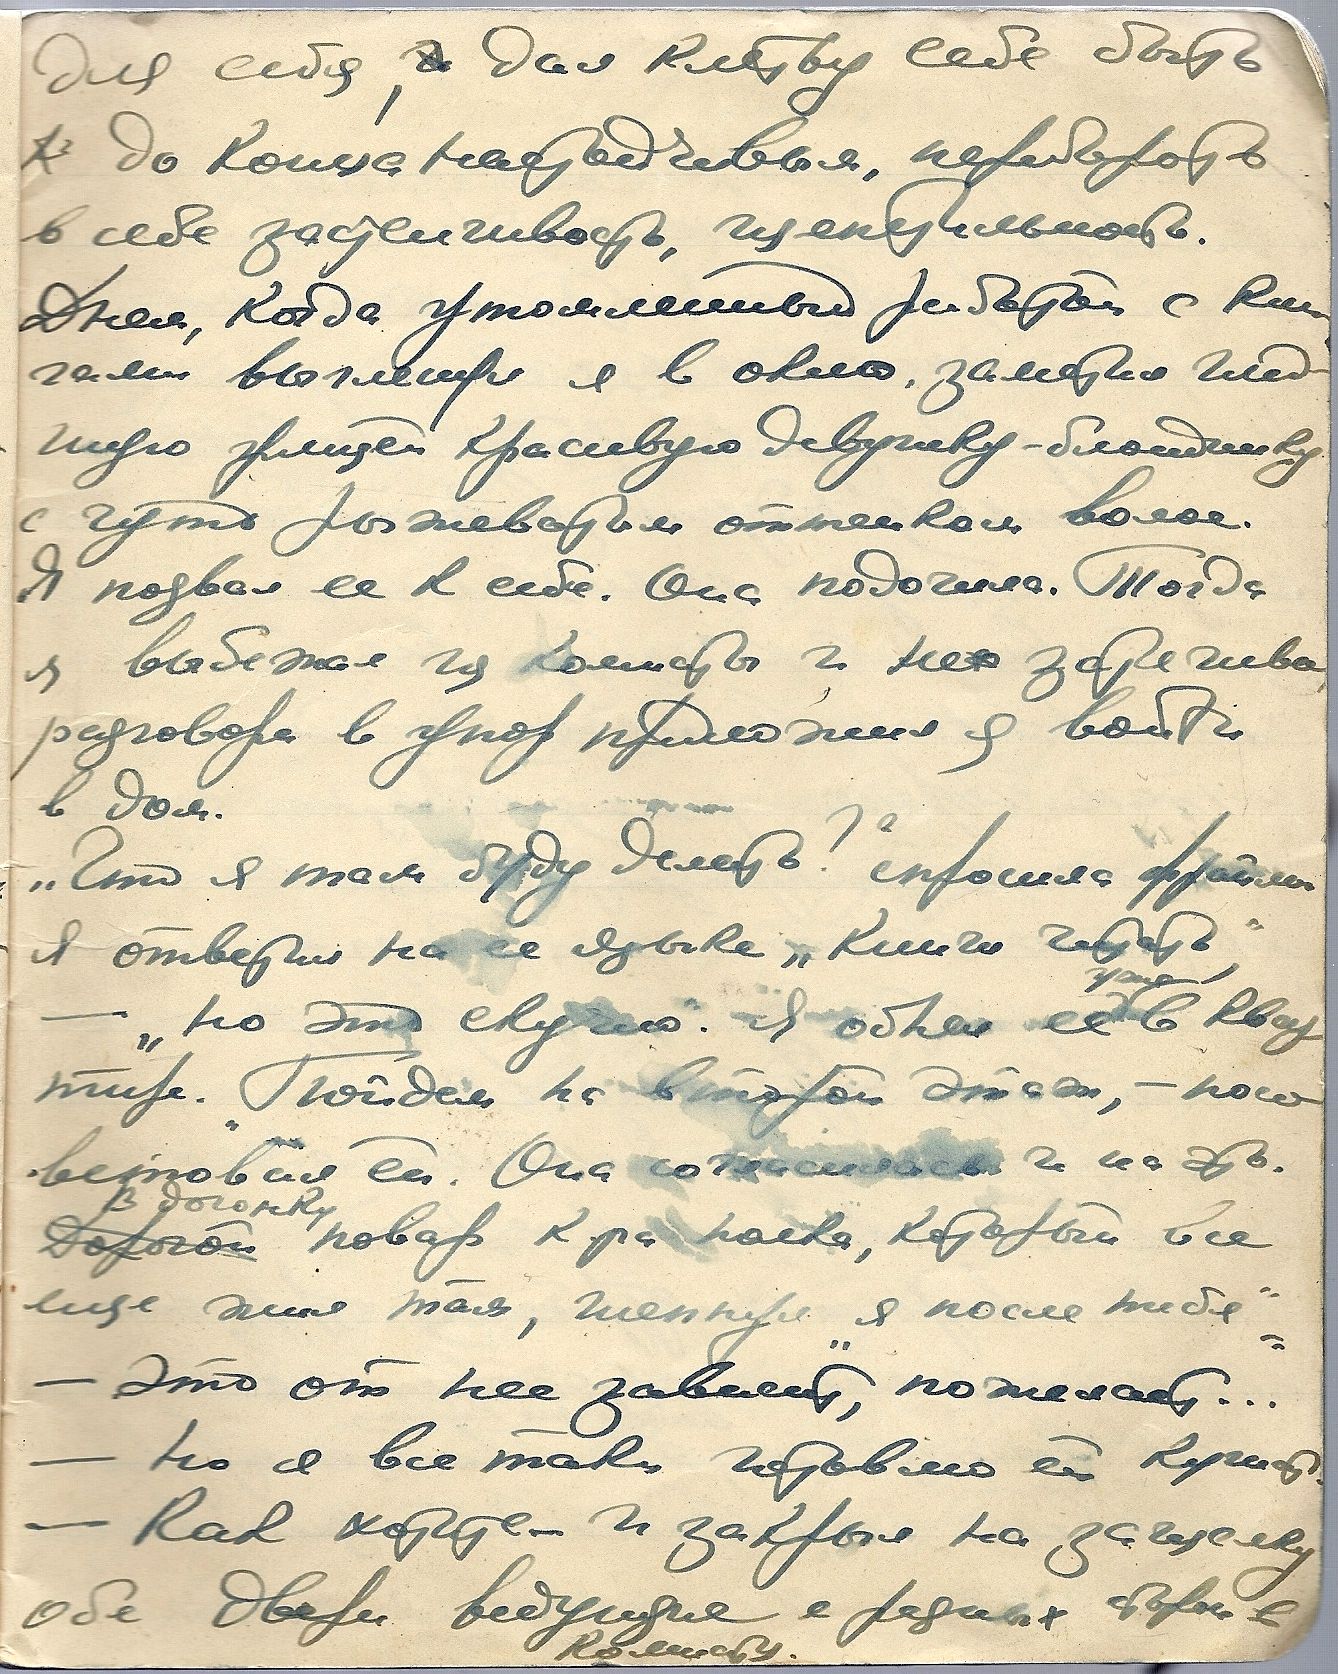 для себя, дал клятву себе быть
до конца настойчивым, перебороть
в себе застенчивость, щепетильность.
Днем, когда утомленный работой с кни-
гами выглянул я в окно, заметил иду-
щую улицей красивую девушку-блондинку
с чуть рыжеватым оттенком волос.
Я позвал ее к себе. Она подошла. Тогда
я выбежал из комнаты и не заканчивая
разговора в упор предложил я войти
в дом.
„Что я там буду делать?" спросила фрейлин
Я ответил на ее языке „книги читать"
— „но это скучно". Я обнял ее уже в квар
тире. „Пойдем на второй этаж, — посо
ветовал ей. Она согласилась и на это.
В догонку
Дорогой повар краполка, который все
еще жил там, шепнул „я после тебя"
— Это от нее зависит, пожелает...
— Но я все таки готовлю ей кушать.
— Как хотите — и закрыл на защелку
обе двери ведущие с разных сторон в
комнату.